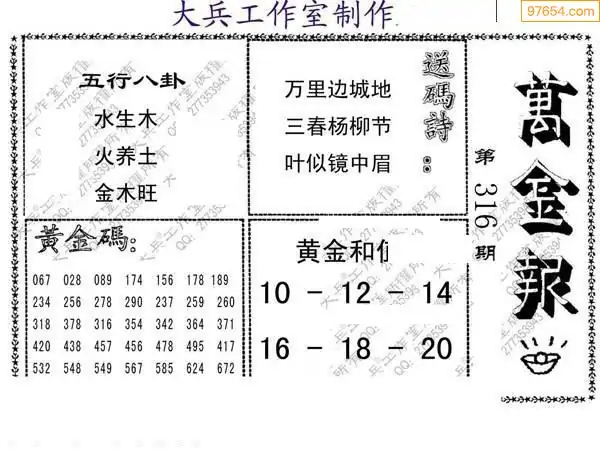 大兵工作室制作
97654.com
五行八卦
水生木
火养土
金木旺
送碼詩：
万里边城地
三春杨柳节
叶似镜中眉
第316期
萬金報
黃金碼：
067 028 089 174 156 178 189
234 256 278 290 237 259 260
318 378 316 354 342 364 371
420 438 457 456 478 495 417
532 548 549 567 585 624 672
黄金和
10 - 12 - 14
16 - 18 - 20